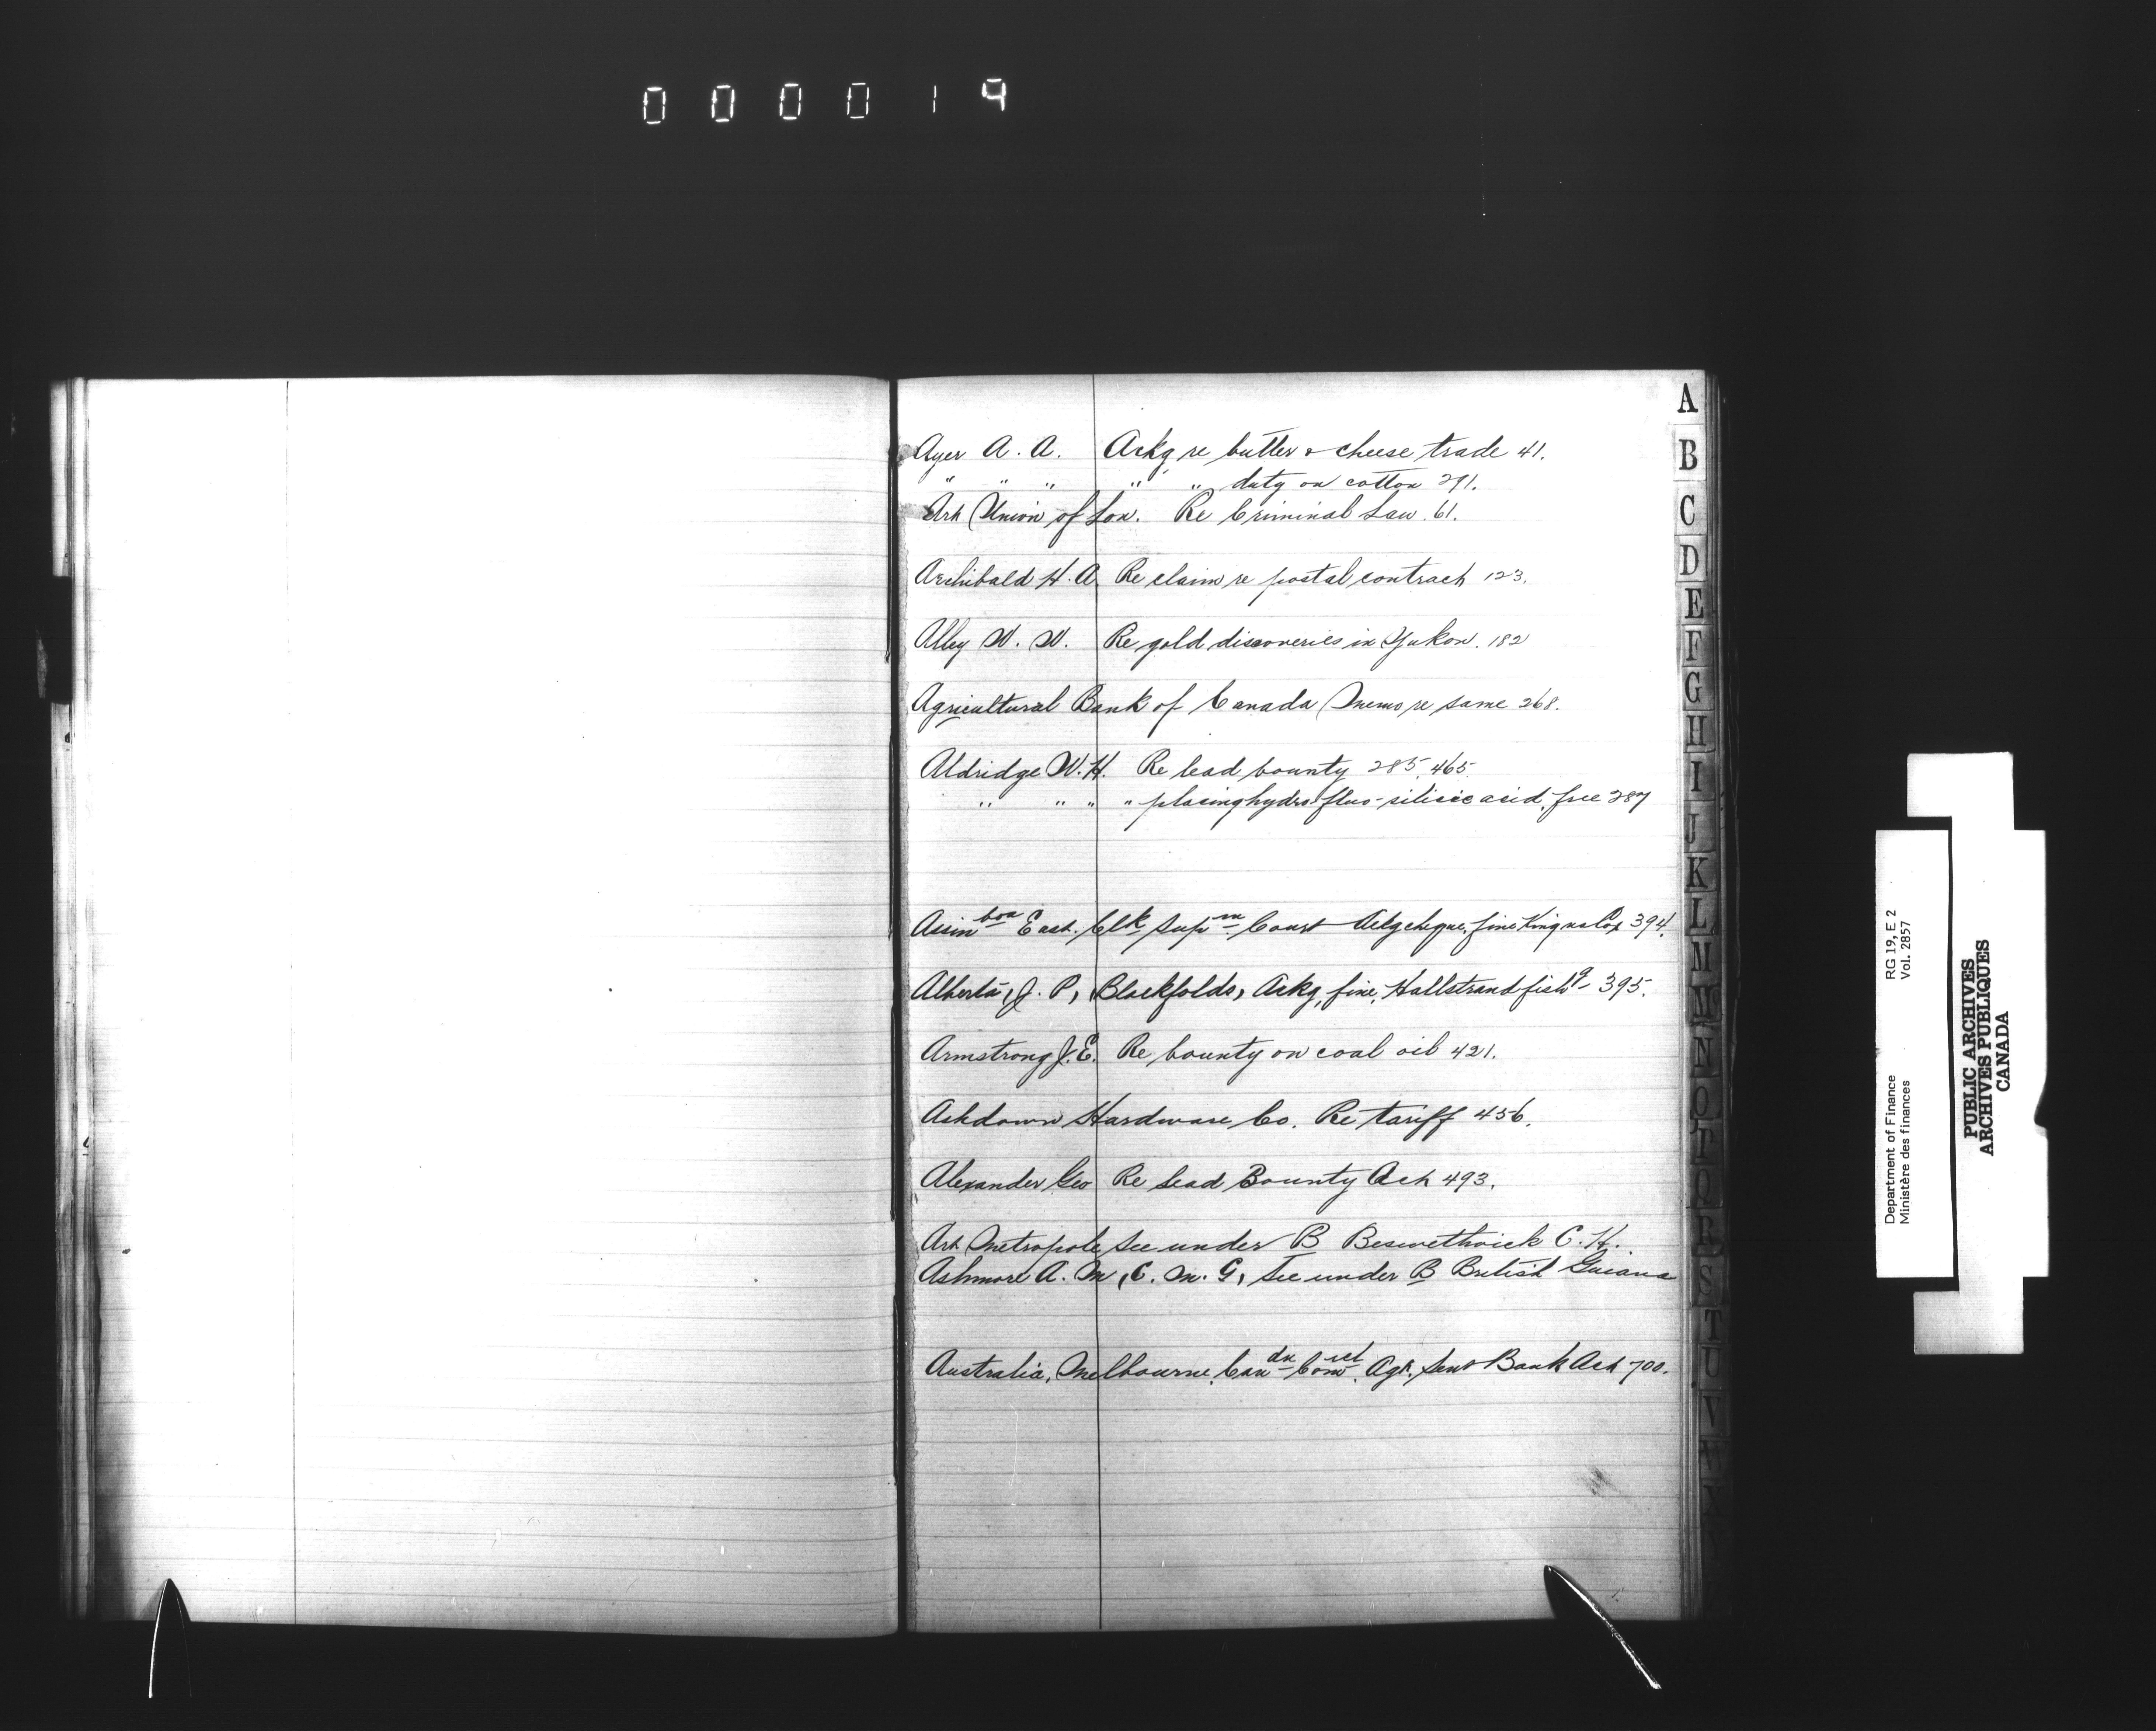 000019
Ayer A. A. Ackg re butter & cheese trade 41.
" " " " " duty on cotton 291.
Art Union of Lon. Re Criminal Law. 61.
Archibald H. A. Re claim re postal contract 123.
Alley W. W. Re gold discoveries in Yukon. 182
Agricultural Bank of Canada Memo re same 268.
Aldridge W. H. Re lead bounty 285, 465
" " " " placing hydro-fluo-silicic acid, free 287
Assinboa East. Clk Supm Court Ackg cheque, fine King vs Cox 394.
Alberta, J. P., Blackfolds, Ackg, fine, Hallstrand fishg 395.
Armstrong J. E. Re bounty on coal oil 421.
Ashdown Hardware Co. Re tariff 456.
Alexander Geo Re Lead Bounty Act 493.
Art Metropole see under B Beswetherick C. H.
Ashmore A. M, C. M. G, See under B British Guiana
Australia, Melbourne, Candn Comrcl. Agt. sent Bank Act 700.
A
B
C
D
E
F
G
H
I
J
K
L
M
M
N
O
P
Q
R
S
T
U
V
W
Department of Finance RG 19, E 2
Ministère des finances Vol. 2857
PUBLIC ARCHIVES
ARCHIVES PUBLIQUES
CANADA